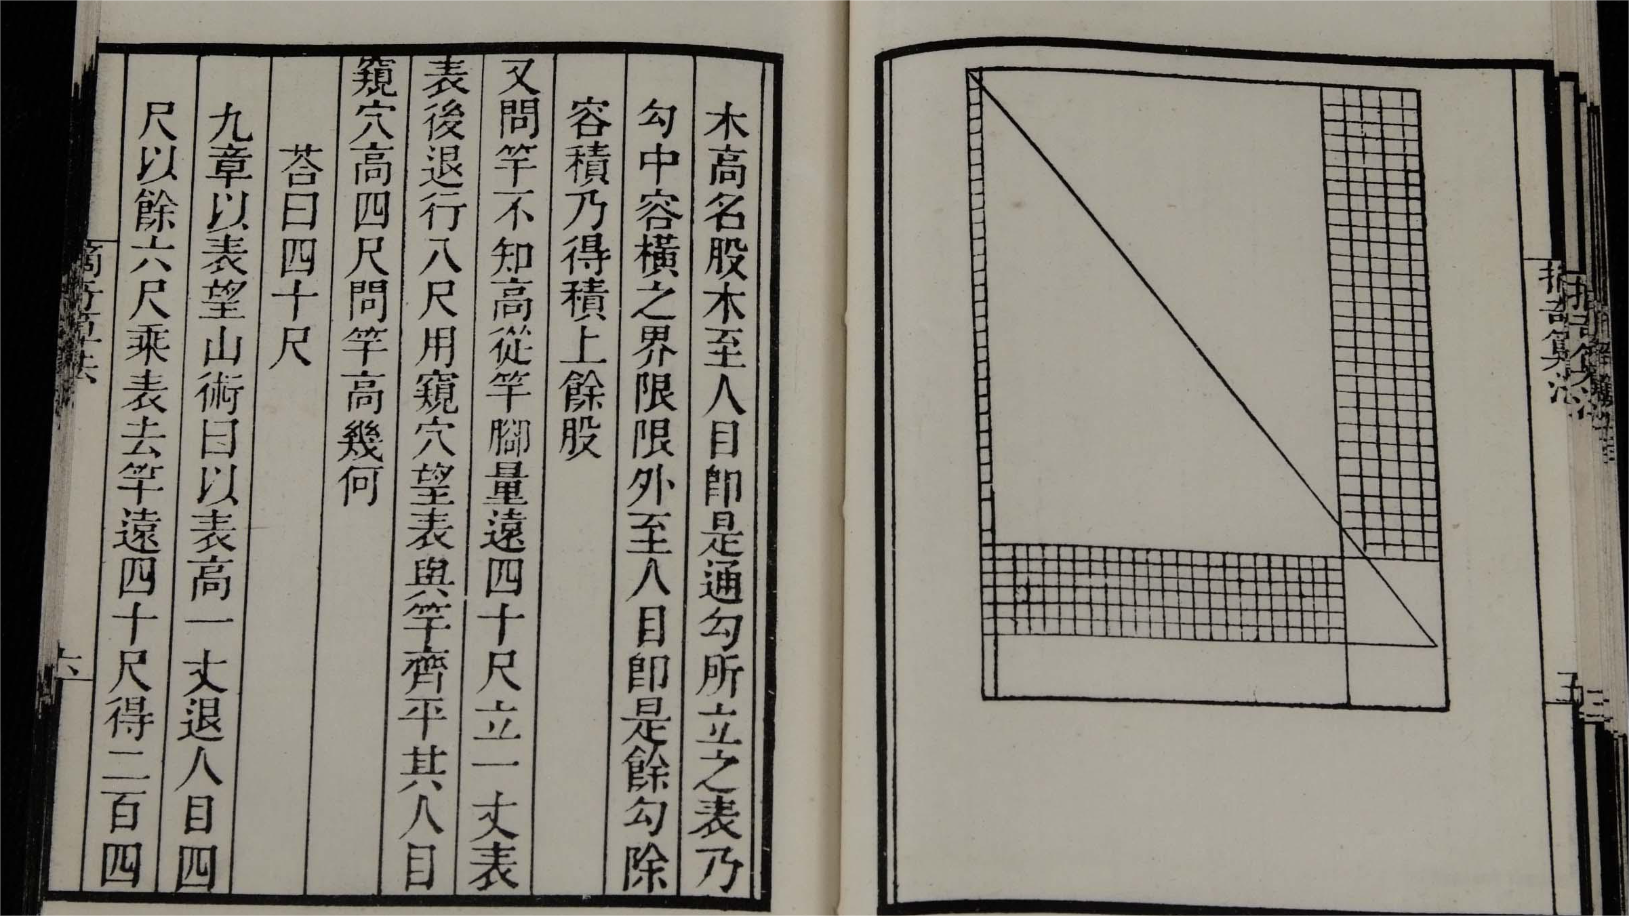 木高名股木至人目即是通勾所立之表乃
勾中容橫之界限限外至人目即是餘勾除
容積乃得積上餘股
又問竿不知高從竿腳量遠四十尺立一丈表
表後退行八尺用窺穴望表與竿齊平其人目
窺穴高四尺問竿高幾何
荅曰四十尺
九章以表望山術曰以表高一丈退人目四
尺以餘六尺乘表去竿遠四十尺得二百四
六